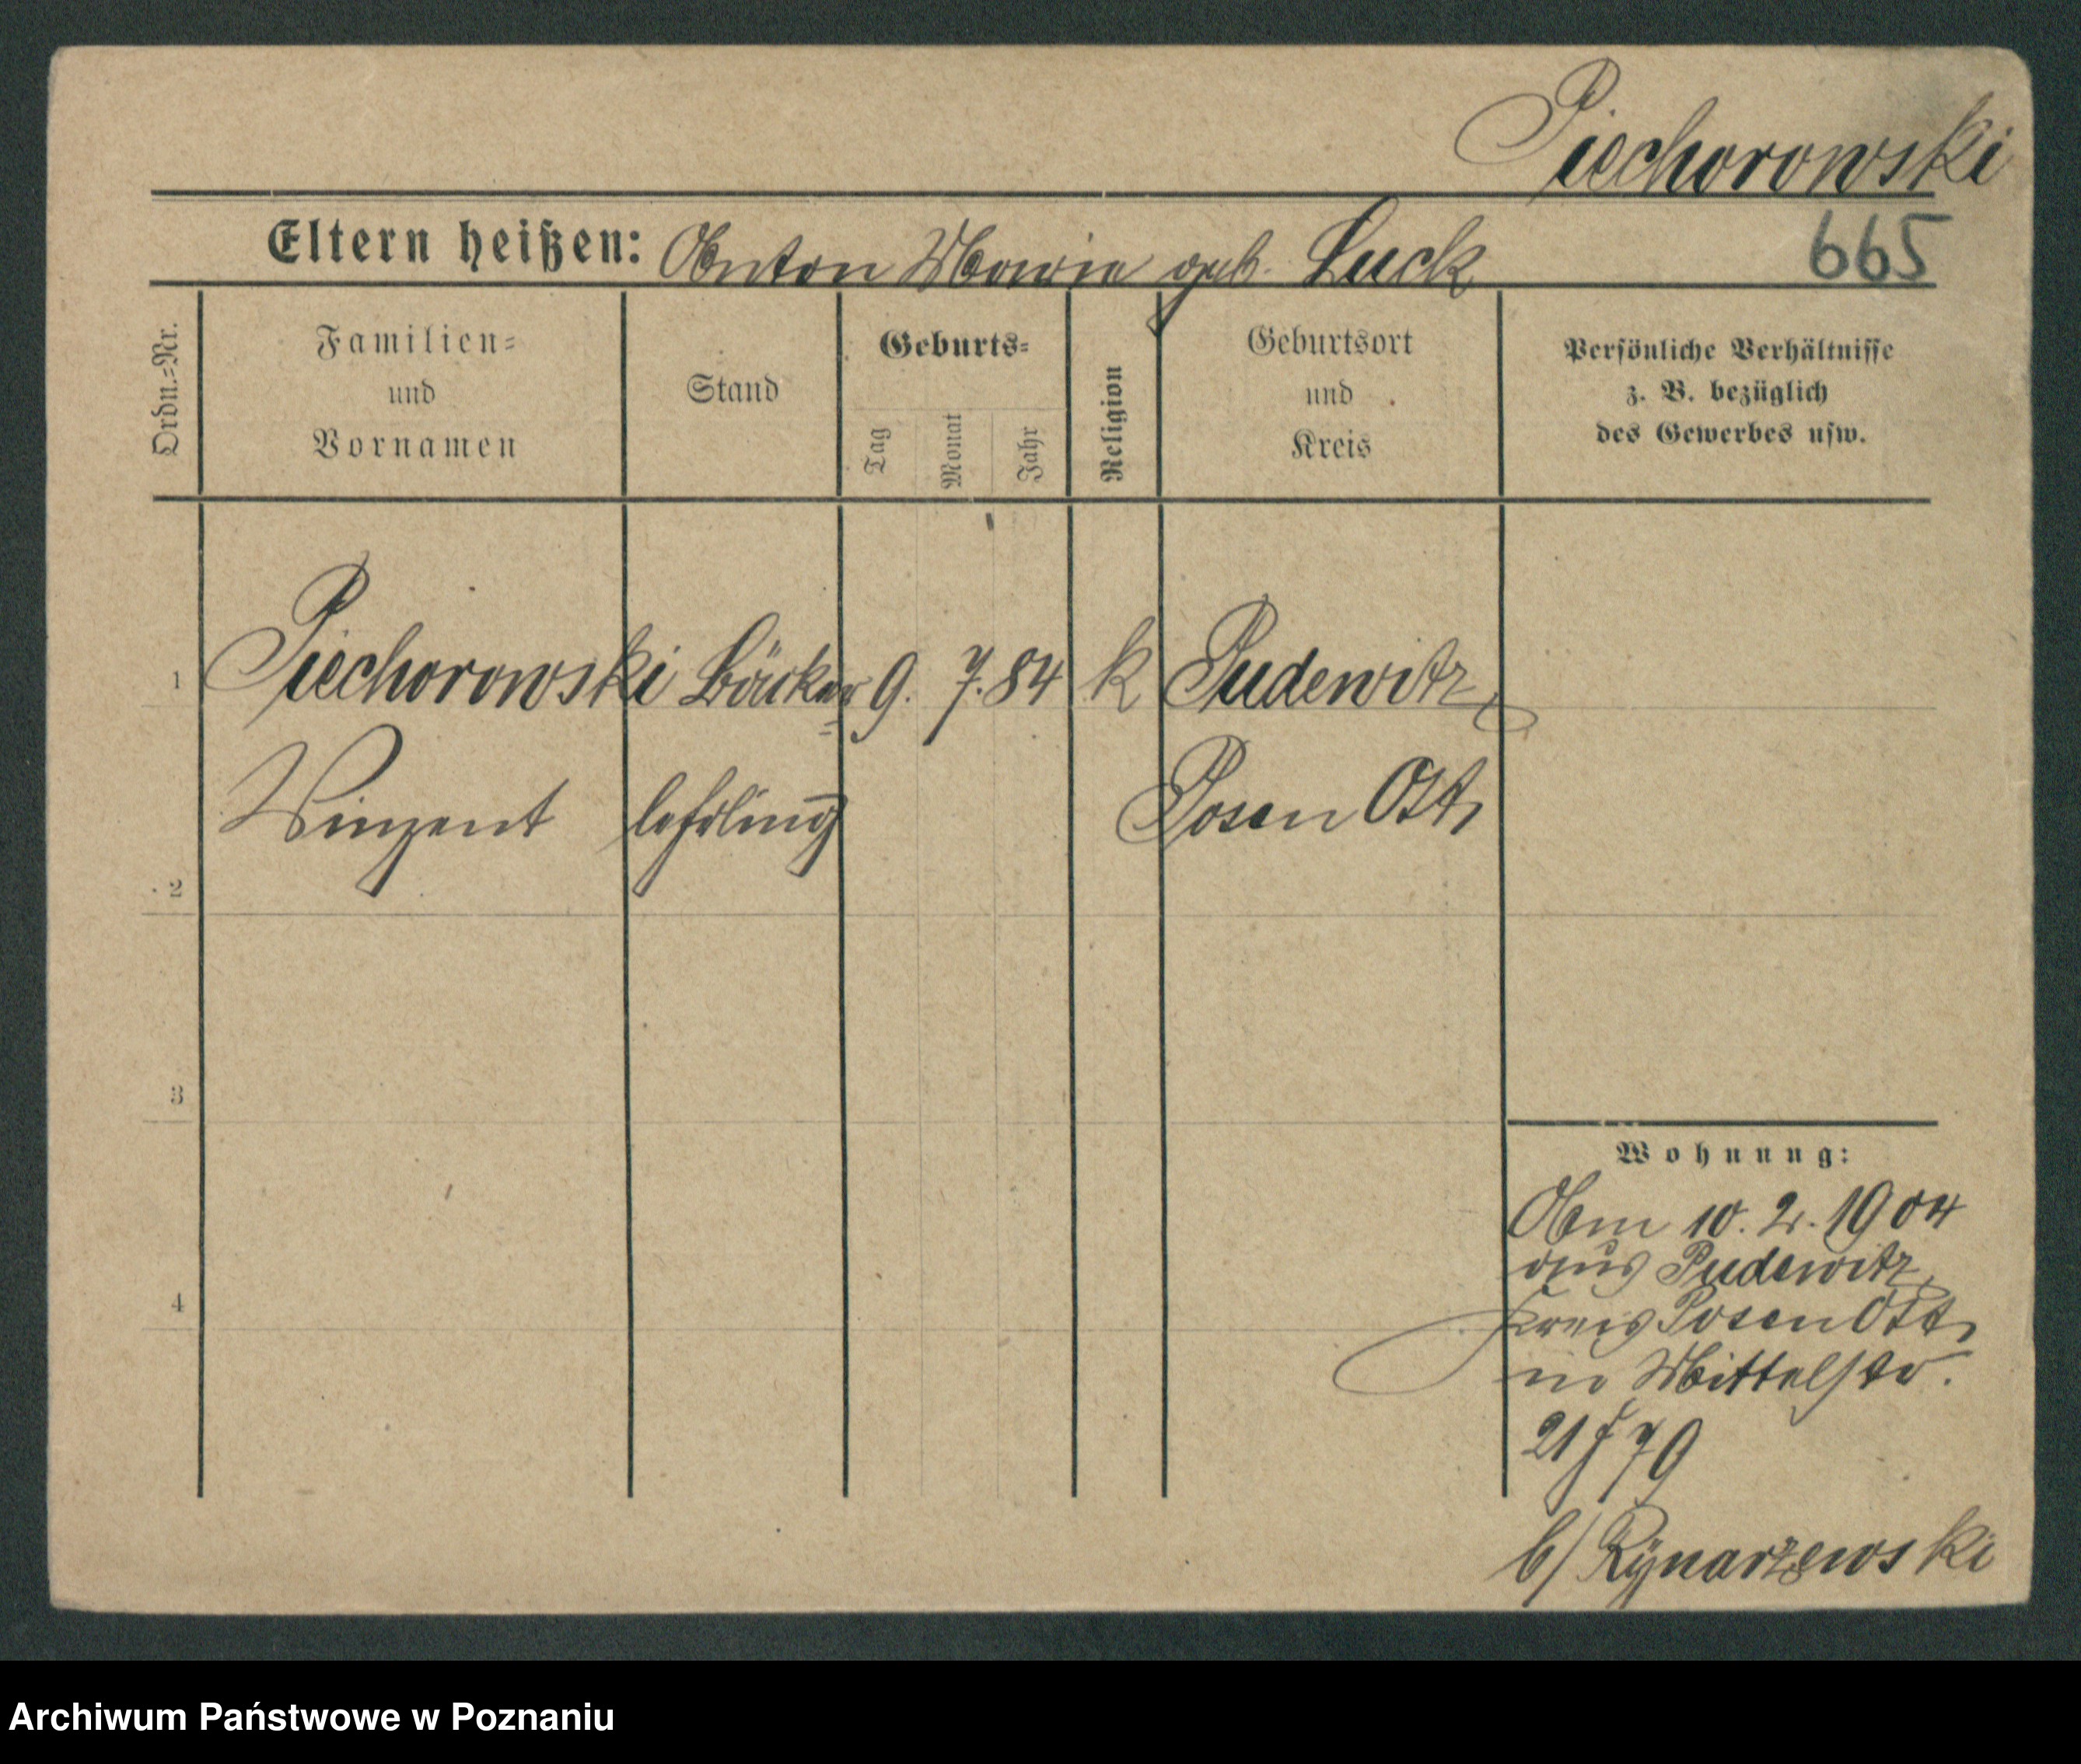 Piechorowski
Eltern heißen: Anton Marie geb. Luck
665
Ordn.=Nr.
Familien=
und
Vornamen
Stand
Geburts=
Tag
Monat
Jahr
Religion
Geburtsort
und
Kreis
Persönliche Verhältnisse
z. B. bezüglich
des Gewerbes usw.
1 Piechorowski Bäcker= 9. 7. 84 k Pudewitz
Vinzent lehrling Posen Ost
2
3
4
Wohnung:
Am 10. 2. 1904
aus Pudewitz
Kreis Posen Ost
in Mittelstr.
21 79
b/ Rÿnarzewski
Archiwum Państwowe w Poznaniu